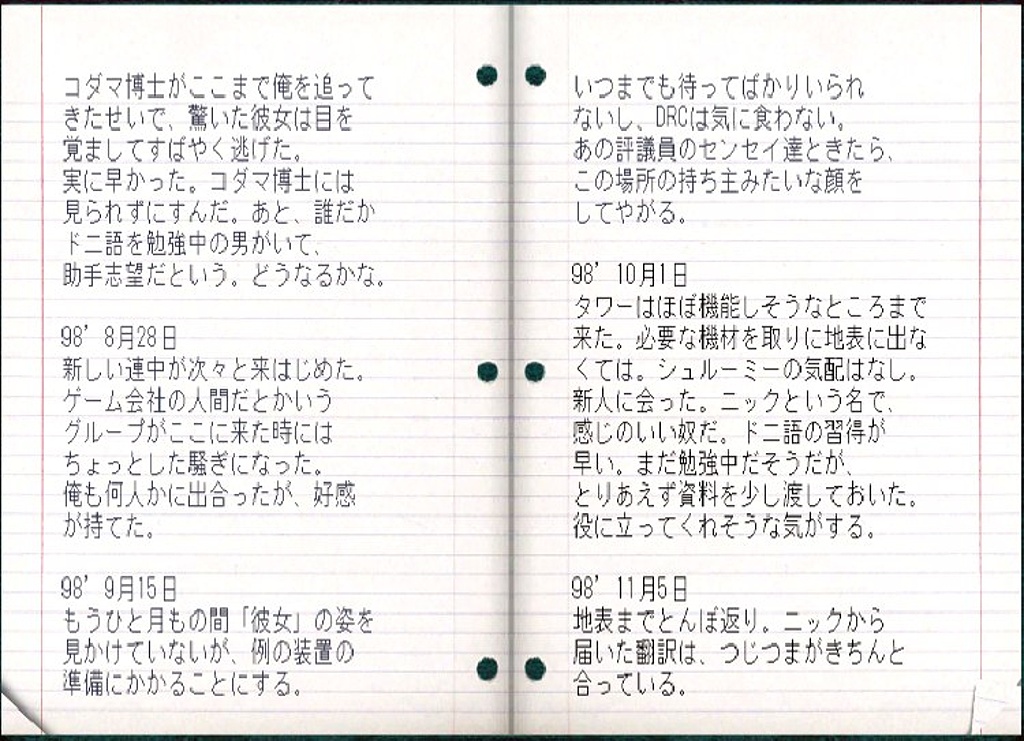 コダマ博士がここまで俺を追って
きたせいで、驚いた彼女は目を
覚ましてすばやく逃げた。
実に早かった。コダマ博士には
見られずにすんだ。あと、誰だか
ドニ語を勉強中の男がいて、
助手志望だという。どうなるかな。
98’ 8月28日
新しい連中が次々と来はじめた。
ゲーム会社の人間だとかいう
グループがここに来た時には
ちょっとした騒ぎになった。
俺も何人かに出合ったが、好感
が持てた。
98’ 9月15日
もうひと月もの間「彼女」の姿を
見かけていないが、例の装置の
準備にかかることにする。
いつまでも待ってばかりいられ
ないし、DRCは気に食わない。
あの評議員のセンセイ達ときたら、
この場所の持ち主みたいな顔を
してやがる。
98’ 10月1日
タワーはほぼ機能しそうなところまで
来た。必要な機材を取りに地表に出な
くては。シュルーミーの気配はなし。
新人に会った。ニックという名で、
感じのいい奴だ。ドニ語の習得が
早い。まだ勉強中だそうだが、
とりあえず資料を少し渡しておいた。
役に立ってくれそうな気がする。
98’ 11月5日
地表までとんぼ返り。ニックから
届いた翻訳は、つじつまがきちんと
合っている。